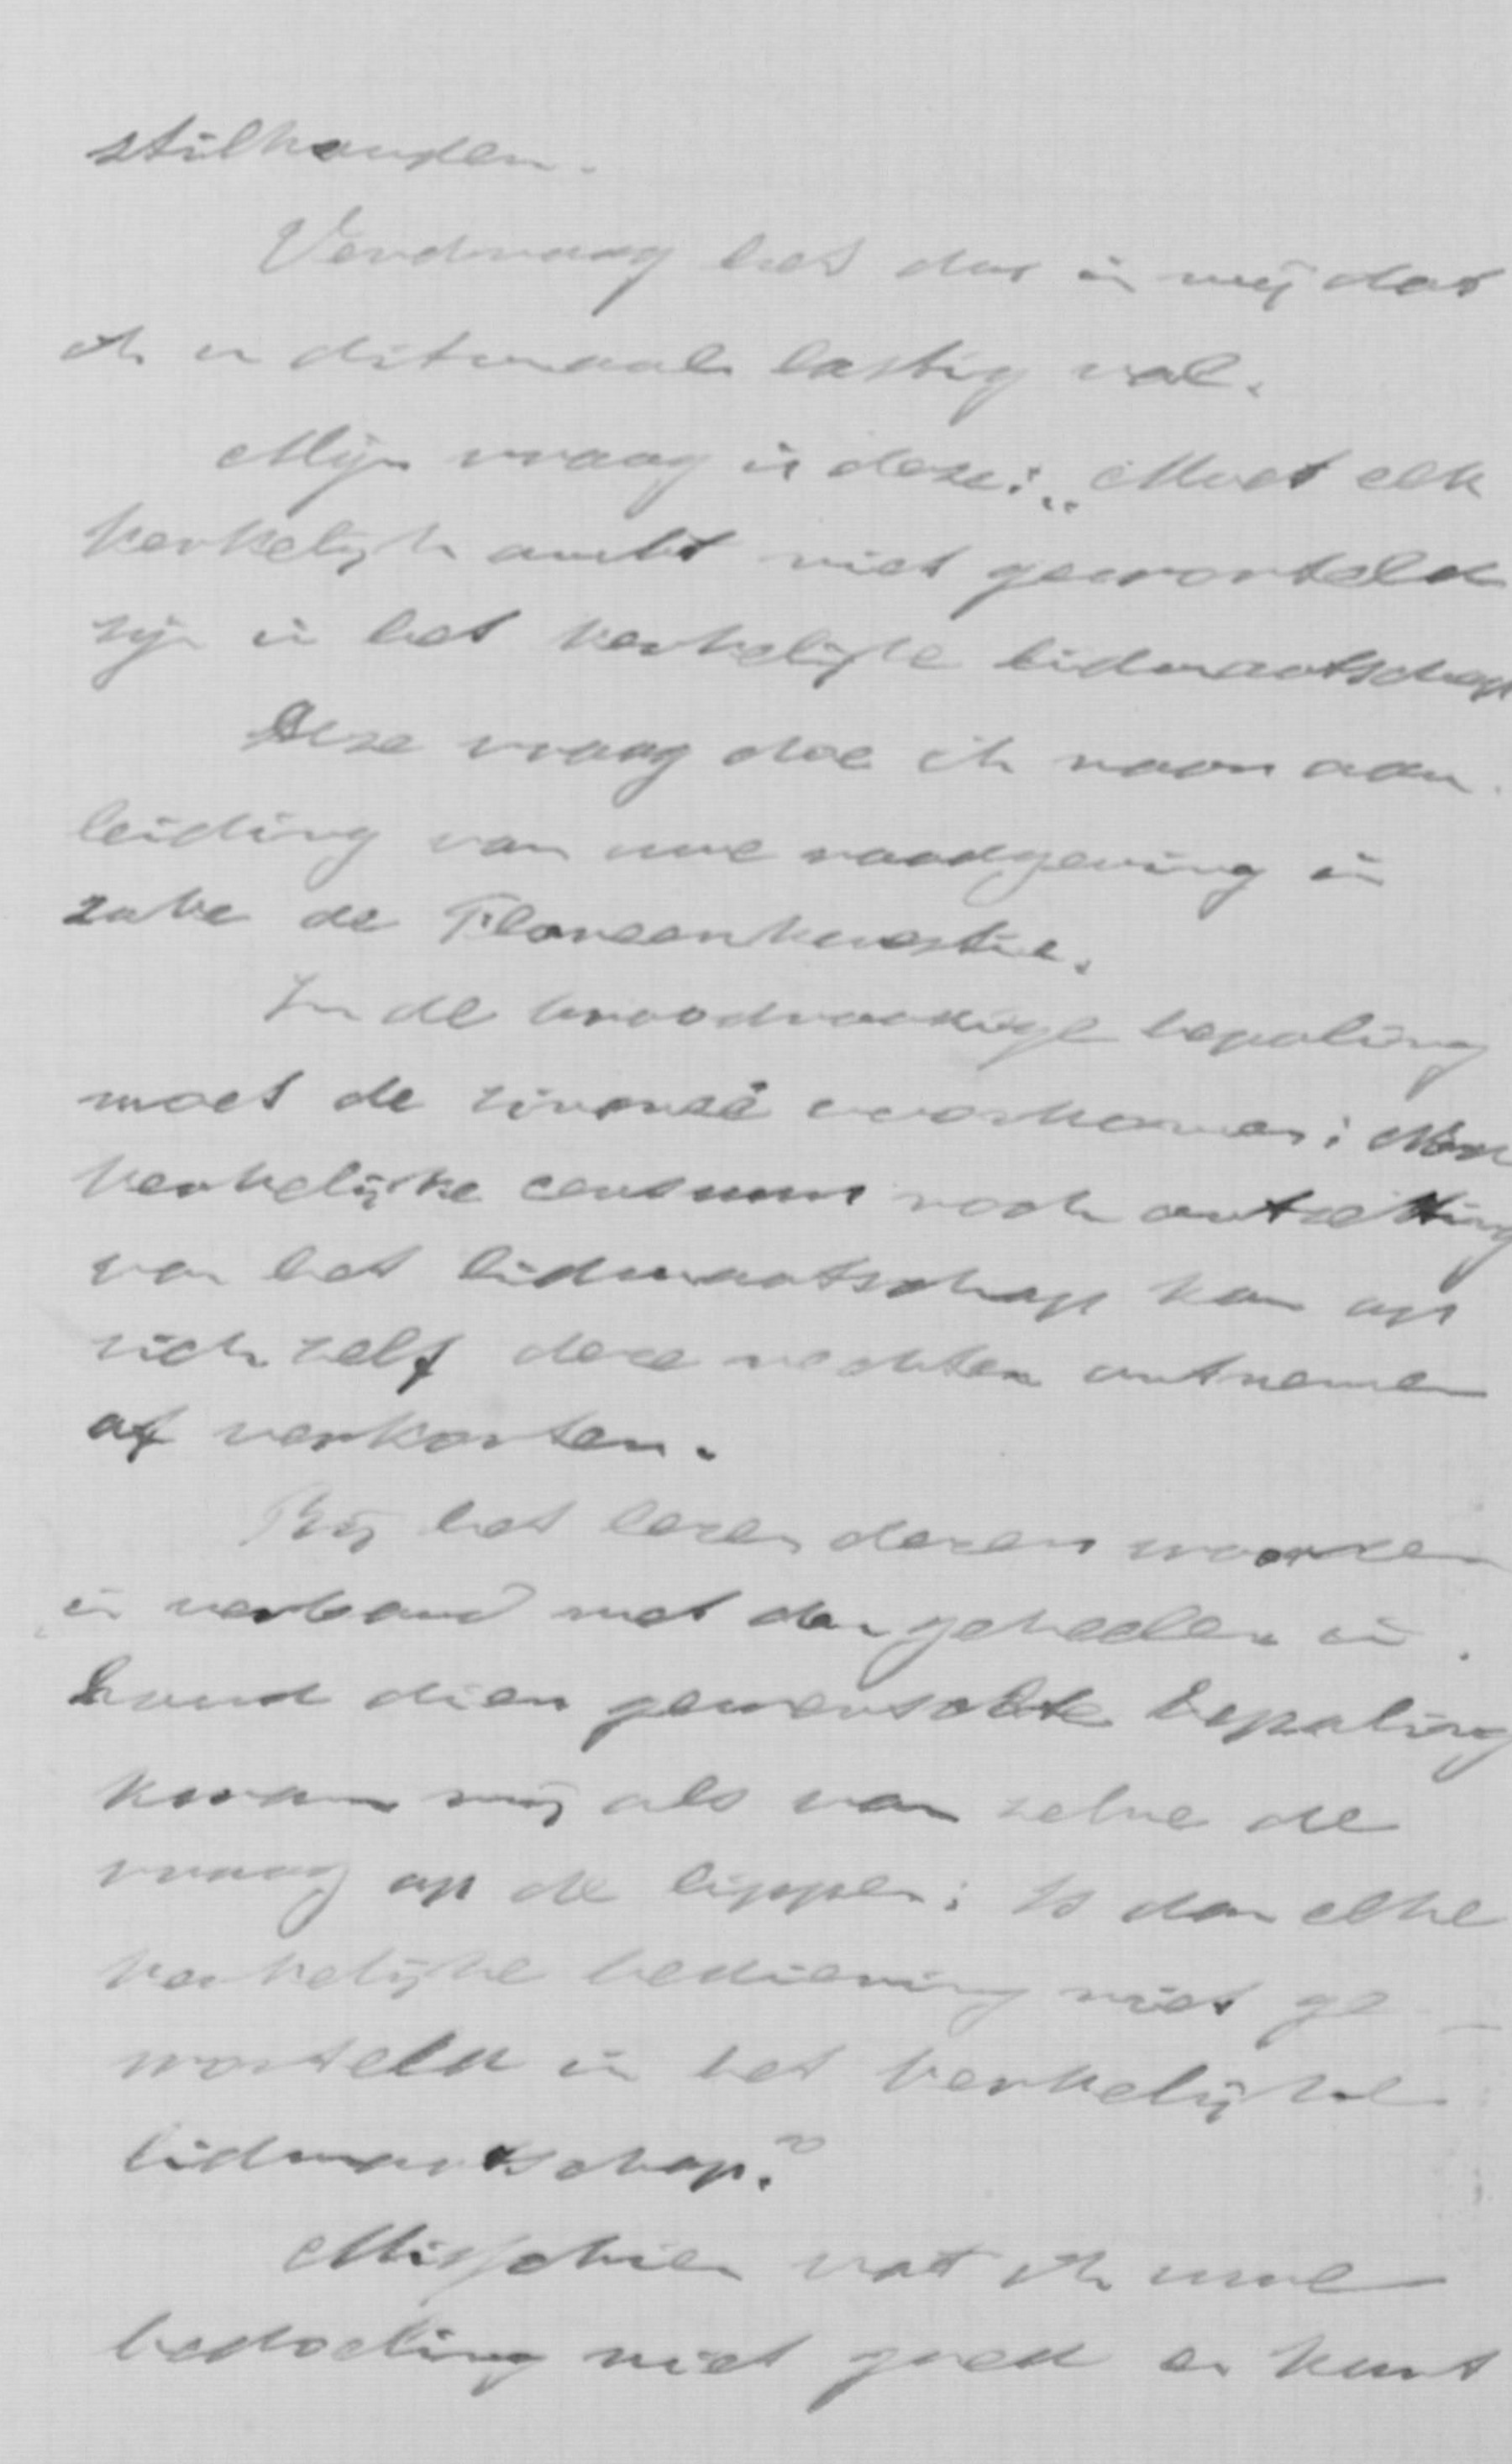 stilhouden.
Verdraag het dus in mij dat
ik u ditmaal lastig val.
Mijn vraag is deze: „Moet elk
kerkelijk ambt niet geworteld
zijn in het kerkelijke lidmaatschap
Deze vraag doe ik naar aan-
leiding van uwe raadgeving in
zake de Floreenkwestie.
In de noodige bepaling
moet de zinsneê voorkomen: Noch
kerkelijke censuur noch ontzetting
van het lidmaatschap kan op
zich zelf deze rechten ontnemen
of verkorten.
Bij het lezen dezer woorden
in verband met den geheelen in-
houd dien gewenschte bepaling
kwam mij als van zelve de
vraag op de lippen: Is dan elke
kerkelijke bediening niet ge-
worteld in het kerkelijke
lidmaatschap?
Misschien vat ik uwe
bedoeling niet goed en kunt